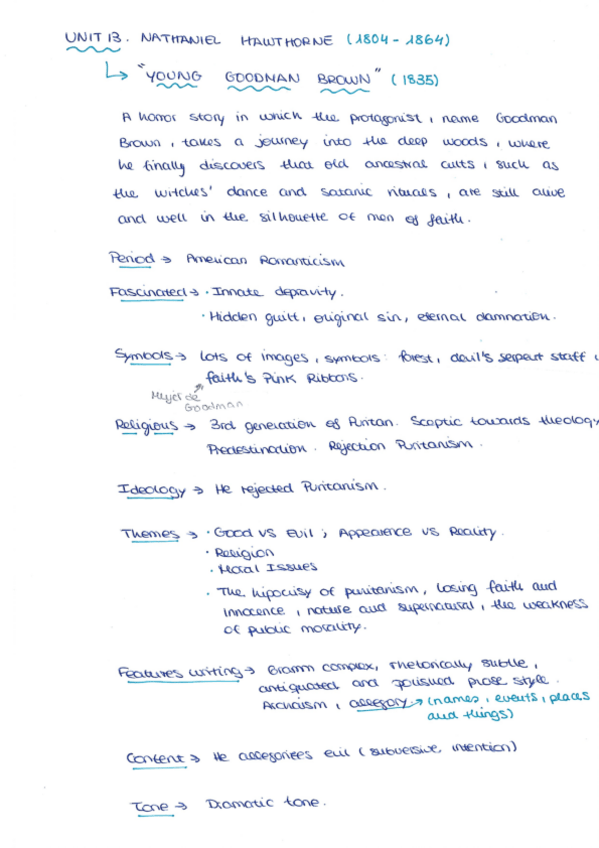 UNIT 13. NATHANIEL HAWTHORNE (1804 - 1864)
↳ "YOUNG GOODNAN BROWN" (1835)
A horror story in which the protagonist, name Goodman
Brown, takes a journey into the deep woods, where
he finally discovers that old ancestral cults, such as
the witches' dance and satanic rituals, are still alive
and well in the silhouette of men of faith.
Period → American Romanticism
Fascinated → · Innate depravity.
· Hidden guilt, original sin, eternal damnation.
Symbols → Lots of images, symbols: forest, devil's serpent staff,
faith's Pink Ribbons.
Mujer de
Goodman
Religious → 3rd generation of Puritan. Sceptic towards theology
Predestination. Rejection Puritanism.
Ideology → He rejected Puritanism.
Themes → · Good vs Evil; Appearence vs Reality.
· Religion
· Moral Issues
· The hipocrisy of puritanism, losing faith and
innocence, nature and supernatural, the weakness
of public morality.
Features writing → complex, rhetorically subtle,
antiquated and polished prose style.
Archaism, allegory → (names, events, places
and things)
Content → He allegorises evil (subversive intention)
Tone → Dramatic tone.